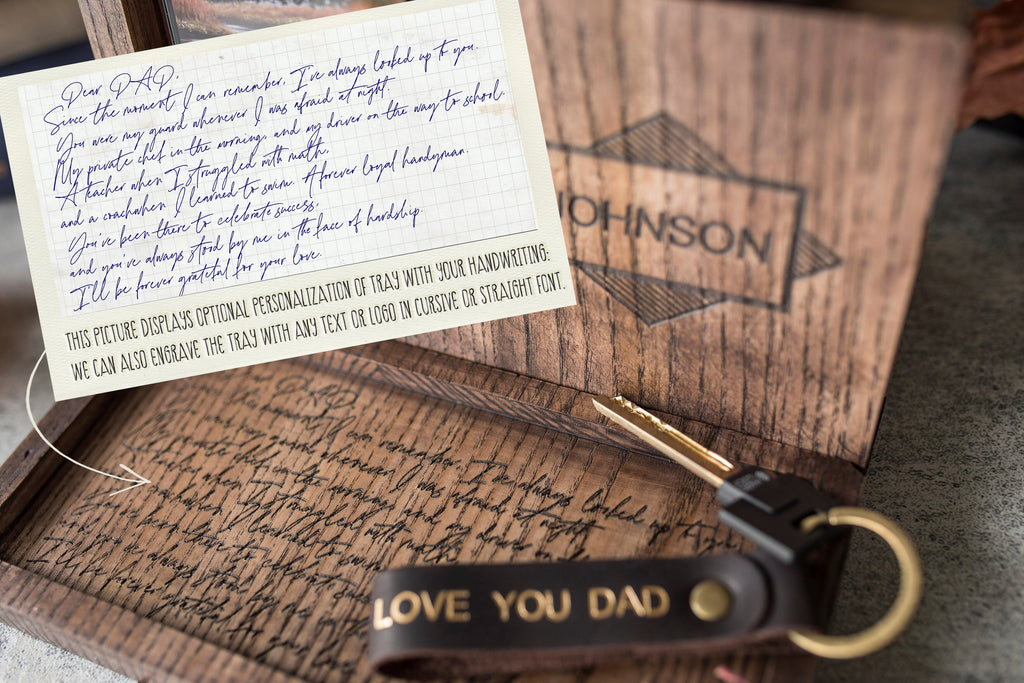 Dear DAD,
Since the moment I can remember, I've always looked up to you.
You were my guard whenever I was afraid at night.
My private chef in the morning, and my driver on the way to school.
A teacher when I struggled with math,
and a coachwhen I learned to swim. A forever loyal handyman.
You've been there to celebrate success,
and you've always stood by me in the face of hardship.
I'll be forever grateful for your love.
THIS PICTURE DISPLAYS OPTIONAL PERSONALIZATION OF TRAY WITH YOUR HANDWRITING;
WE CAN ALSO ENGRAVE THE TRAY WITH ANY TEXT OR LOGO IN CURSIVE OR STRAIGHT FONT.
JOHNSON
DAD,
I can remember, I've always looked up to
guard whenever I was afraid at night
chef in the morning, and my driver on
when I struggled with math
LOVE YOU DAD